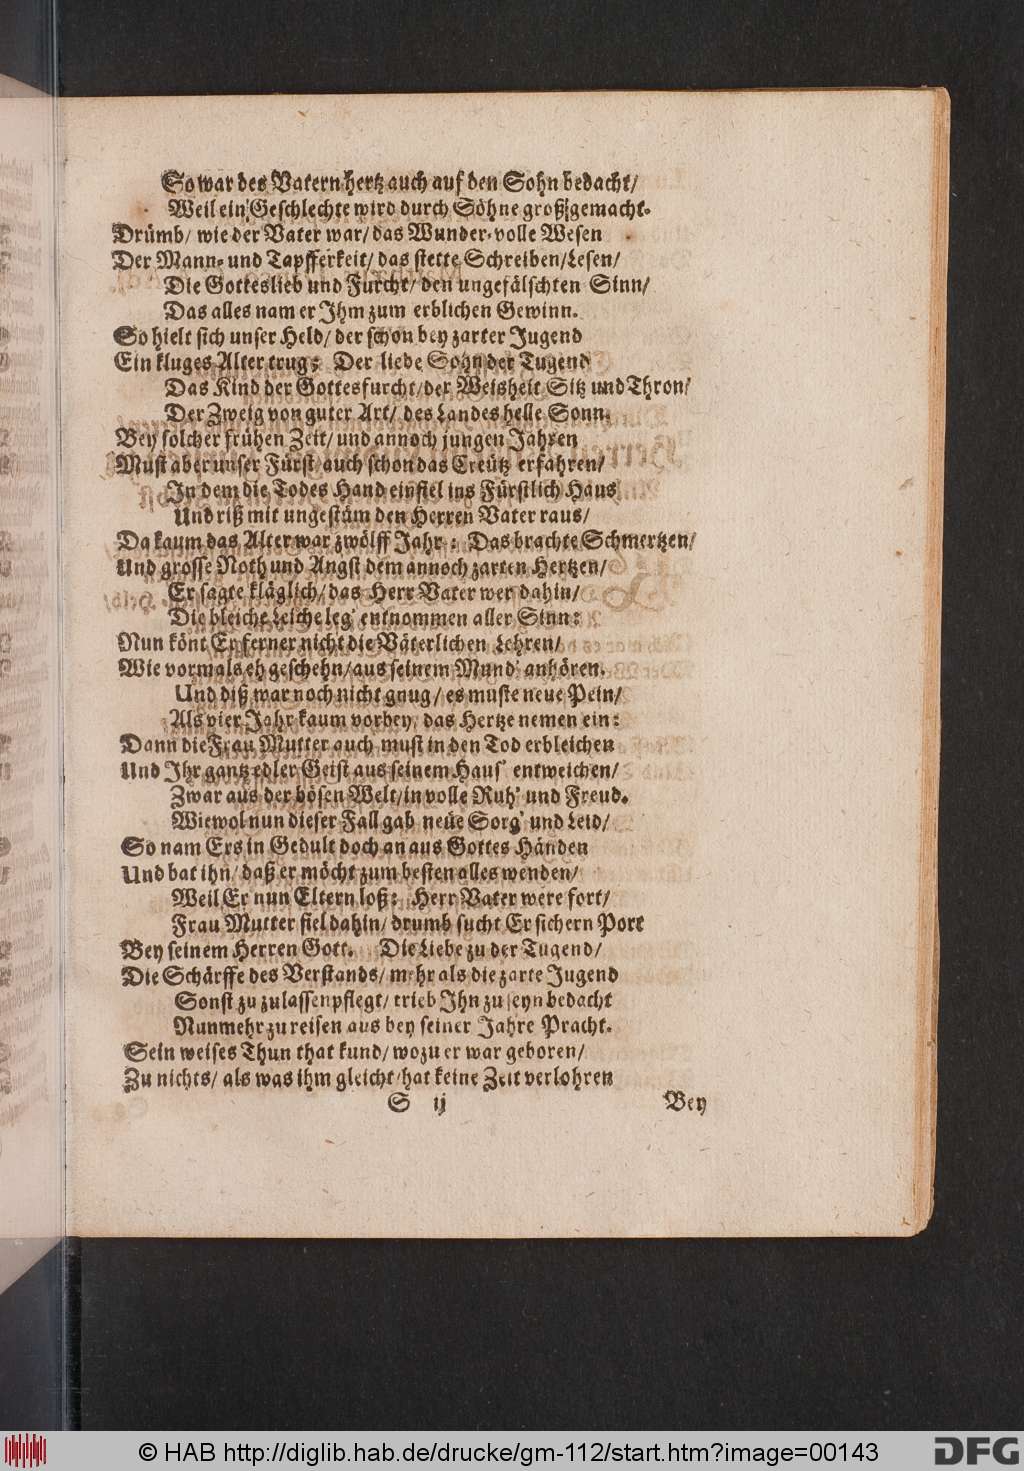 So war des Vatern hertz auch auf den Sohn bedacht/
Weil ein Geschlechte wird durch Söhne groß gemacht.
Drümb/ wie der Vater war/ das Wunder-volle Wesen
Der Mann- und Tapfferkeit/ das stette Schreiben/Lesen/
Die Gotteslieb und Furcht/ den ungefälschten Sinn/
Das alles nam er Ihm zum erblichen Gewinn.
So hielt sich unser Held/ der schon bey zarter Jugend
Ein kluges Alter trug; Der liebe Sohn der Tugend
Das Kind der Gottesfurcht/der Weisheit Sitz und Thron/
Der Zweig von guter Art/ des Landes helle Sonn.
Bey solcher frühen Zeit/ und annoch jungen Jahren
Must aber unser Fürst auch schon das Creütz erfahren/
In dem die Todes Hand einfiel ins Fürstlich Haus
Und riß mit ungestüm den Herren Vater raus/
Da kaum das Alter war zwölff Jahr: Das brachte Schmertzen/
Und grosse Noth und Angst dem annoch zarten Hertzen/
Er sagte kläglich/ das Herr Vater wer dahin/
Die bleiche Leiche leg' entnommen aller Sinn:
Nun könt Er ferner nicht die Väterlichen Lehren/
Wie vormals eh geschehn/aus seinem Mund' anhören.
Und diß war noch nicht gnug/ es muste neue Pein/
Als vier Jahr kaum vorbey/ das Hertze nemen ein:
Dann die Frau Mutter auch must in den Tod erbleichen
Und Ihr gantz edler Geist aus seinem Haus' entweichen/
Zwar aus der bösen Welt/in volle Ruh' und Freud.
Wiewol nun dieser Fall gab neüe Sorg' und Leid/
So nam Ers in Gedult doch an aus Gottes Händen
Und bat ihn/ daß er möcht zum besten alles wenden/
Weil Er nun Eltern loß: Herr Vater were fort/
Frau Mutter fiel dahin/ drumb sucht Er sichern Port
Bey seinem Herren Gott. Die Liebe zu der Tugend/
Die Schärffe des Verstands/ mehr als die zarte Jugend
Sonst zu zulassen pflegt/ trieb Ihn zu seyn bedacht
Nunmehr zu reisen aus bey seiner Jahre Pracht.
Sein weises Thun that kund/ wozu er war geboren/
Zu nichts/ als was ihm gleicht/hat keine Zeit verlohren
S ij Bey
© HAB http://diglib.hab.de/drucke/gm-112/start.htm?image=00143
DFG